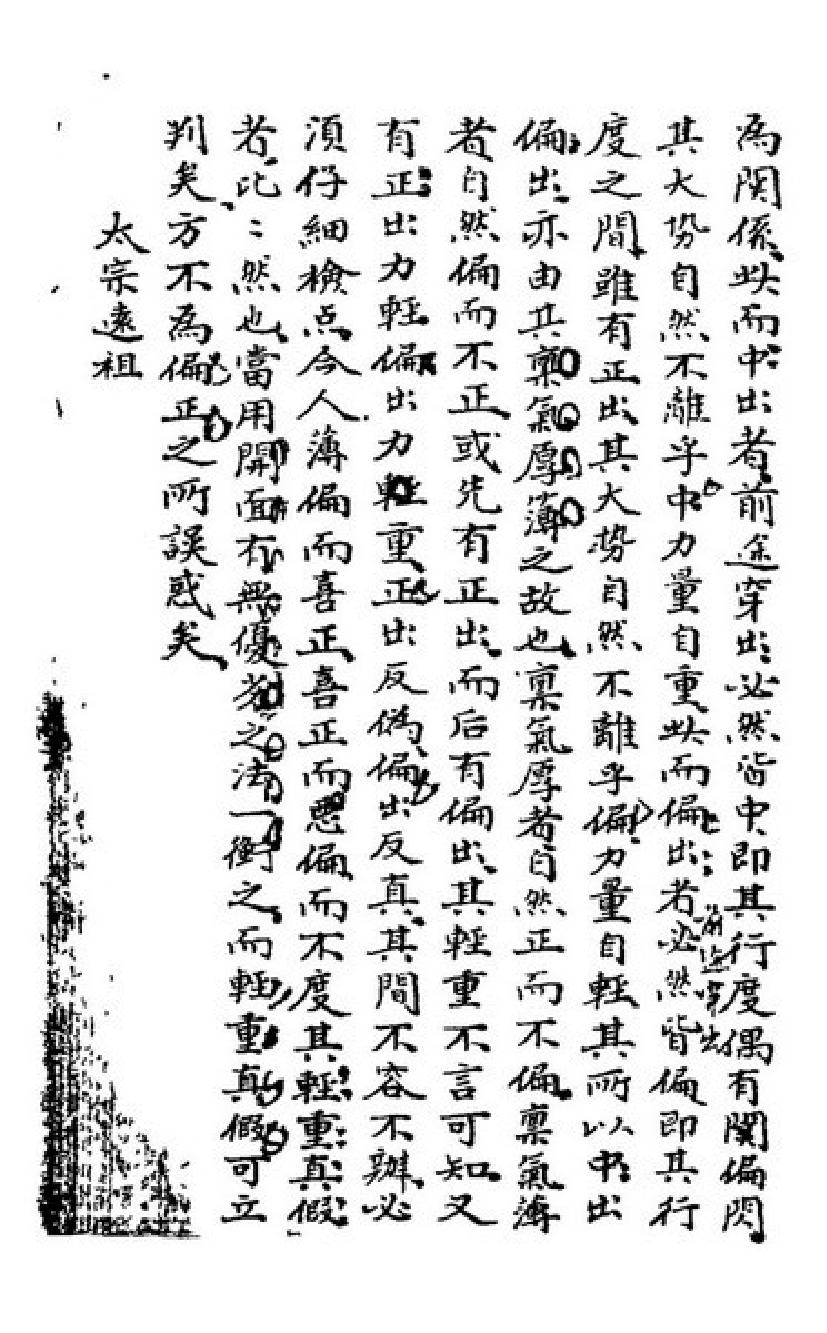 為関係此而中出者前途穿出必然皆中即其行度偶有関偏閃
其大势自然不離乎中力量自重此而偏出者必然皆偏即其行
前途穿出
度之間雖有正出其大势自然不離乎偏力量自輕其所以中出
偏出亦由其稟氣厚薄之故也稟氣厚者自然正而不偏稟氣薄
者自然偏而不正或先有正出而后有偏出其輕重不言可知又
有正出力輕偏出力輕重正出反偽偏出反真其間不容不辦必
須仔細檢点今人薄偏而喜正喜正而悪偏而不度其輕重真假
者比〻然也當用開面有無優劣之法一衡之而輕重真假可立
判矣方不為偏正之所誤惑矣
太宗遠祖